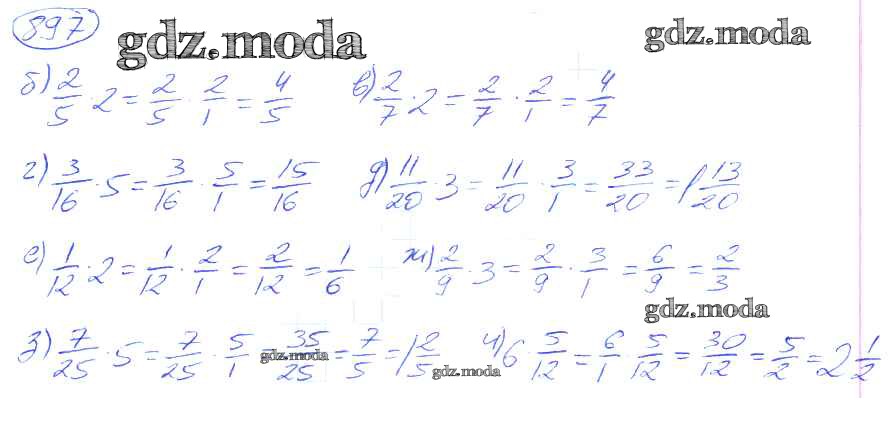 897
gdz.moda gdz.moda
б) 2/5 · 2 = 2/5 · 2/1 = 4/5 в) 2/7 · 2 = 2/7 · 2/1 = 4/7
г) 3/16 · 5 = 3/16 · 5/1 = 15/16 д) 11/20 · 3 = 11/20 · 3/1 = 33/20 = 1 13/20
е) 1/12 · 2 = 1/12 · 2/1 = 2/12 = 1/6 ж) 2/9 · 3 = 2/9 · 3/1 = 6/9 = 2/3
gdz.moda
з) 7/25 · 5 = 7/25 · 5/1 = 35/25 = 7/5 = 1 2/5 и) 6 5/12 = 6/1 · 5/12 = 30/12 = 5/2 = 2 1/2
gdz.moda
gdz.moda